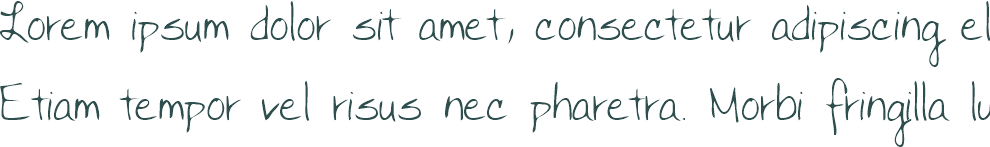 Lorem ipsum dolor sit amet, consectetur adipiscing el
Etiam tempor vel risus nec pharetra. Morbi fringilla lu